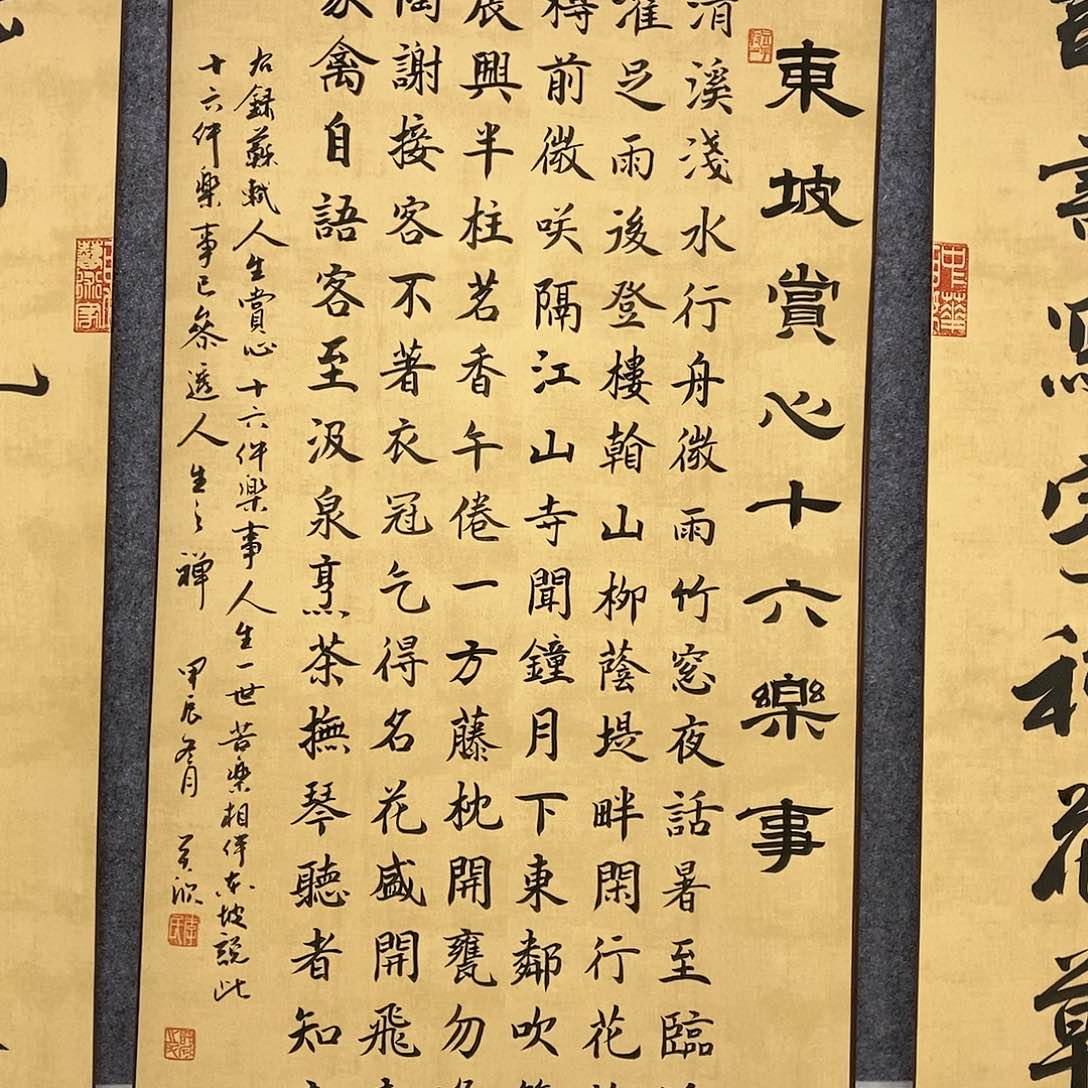 東坡賞心十六樂事
清溪淺水行舟微雨竹窓夜話暑至臨
濯足雨後登樓翰山柳蔭堤畔閑行花
樽前微咲隔江山寺聞鐘月下東鄰吹
晨興半柱茗香午倦一方藤枕開甕勿
陶謝接客不著衣冠乞得名花盛開飛
禽自語客至汲泉烹茶撫琴聽者知
右録蘇軾人生賞心十六件樂事人生一世苦樂相伴東坡説此
十六件樂事已參透人生之禅 甲辰冬月
中華